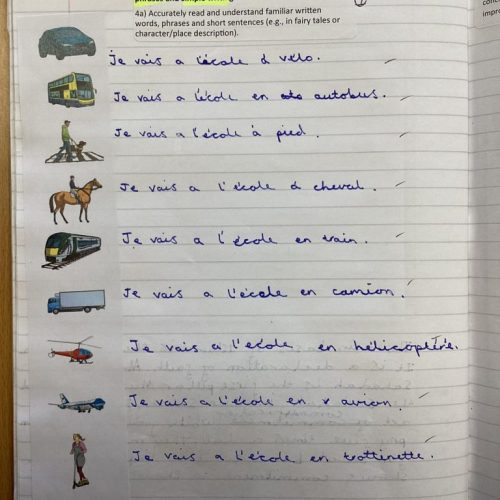 4a) Accurately read and understand familiar written
words, phrases and short sentences (e.g., in fairy tales or
character/place description).
Je vais a l'école à vélo.
Je vais a l'école en autobus.
Je vais a l'école à pied.
Je vais a l'école à cheval.
Je vais a l'école en train.
Je vais a l'école en camion.
Je vais a l'école en hélicoptère.
Je vais a l'école en avion.
Je vais a l'école en trottinette.